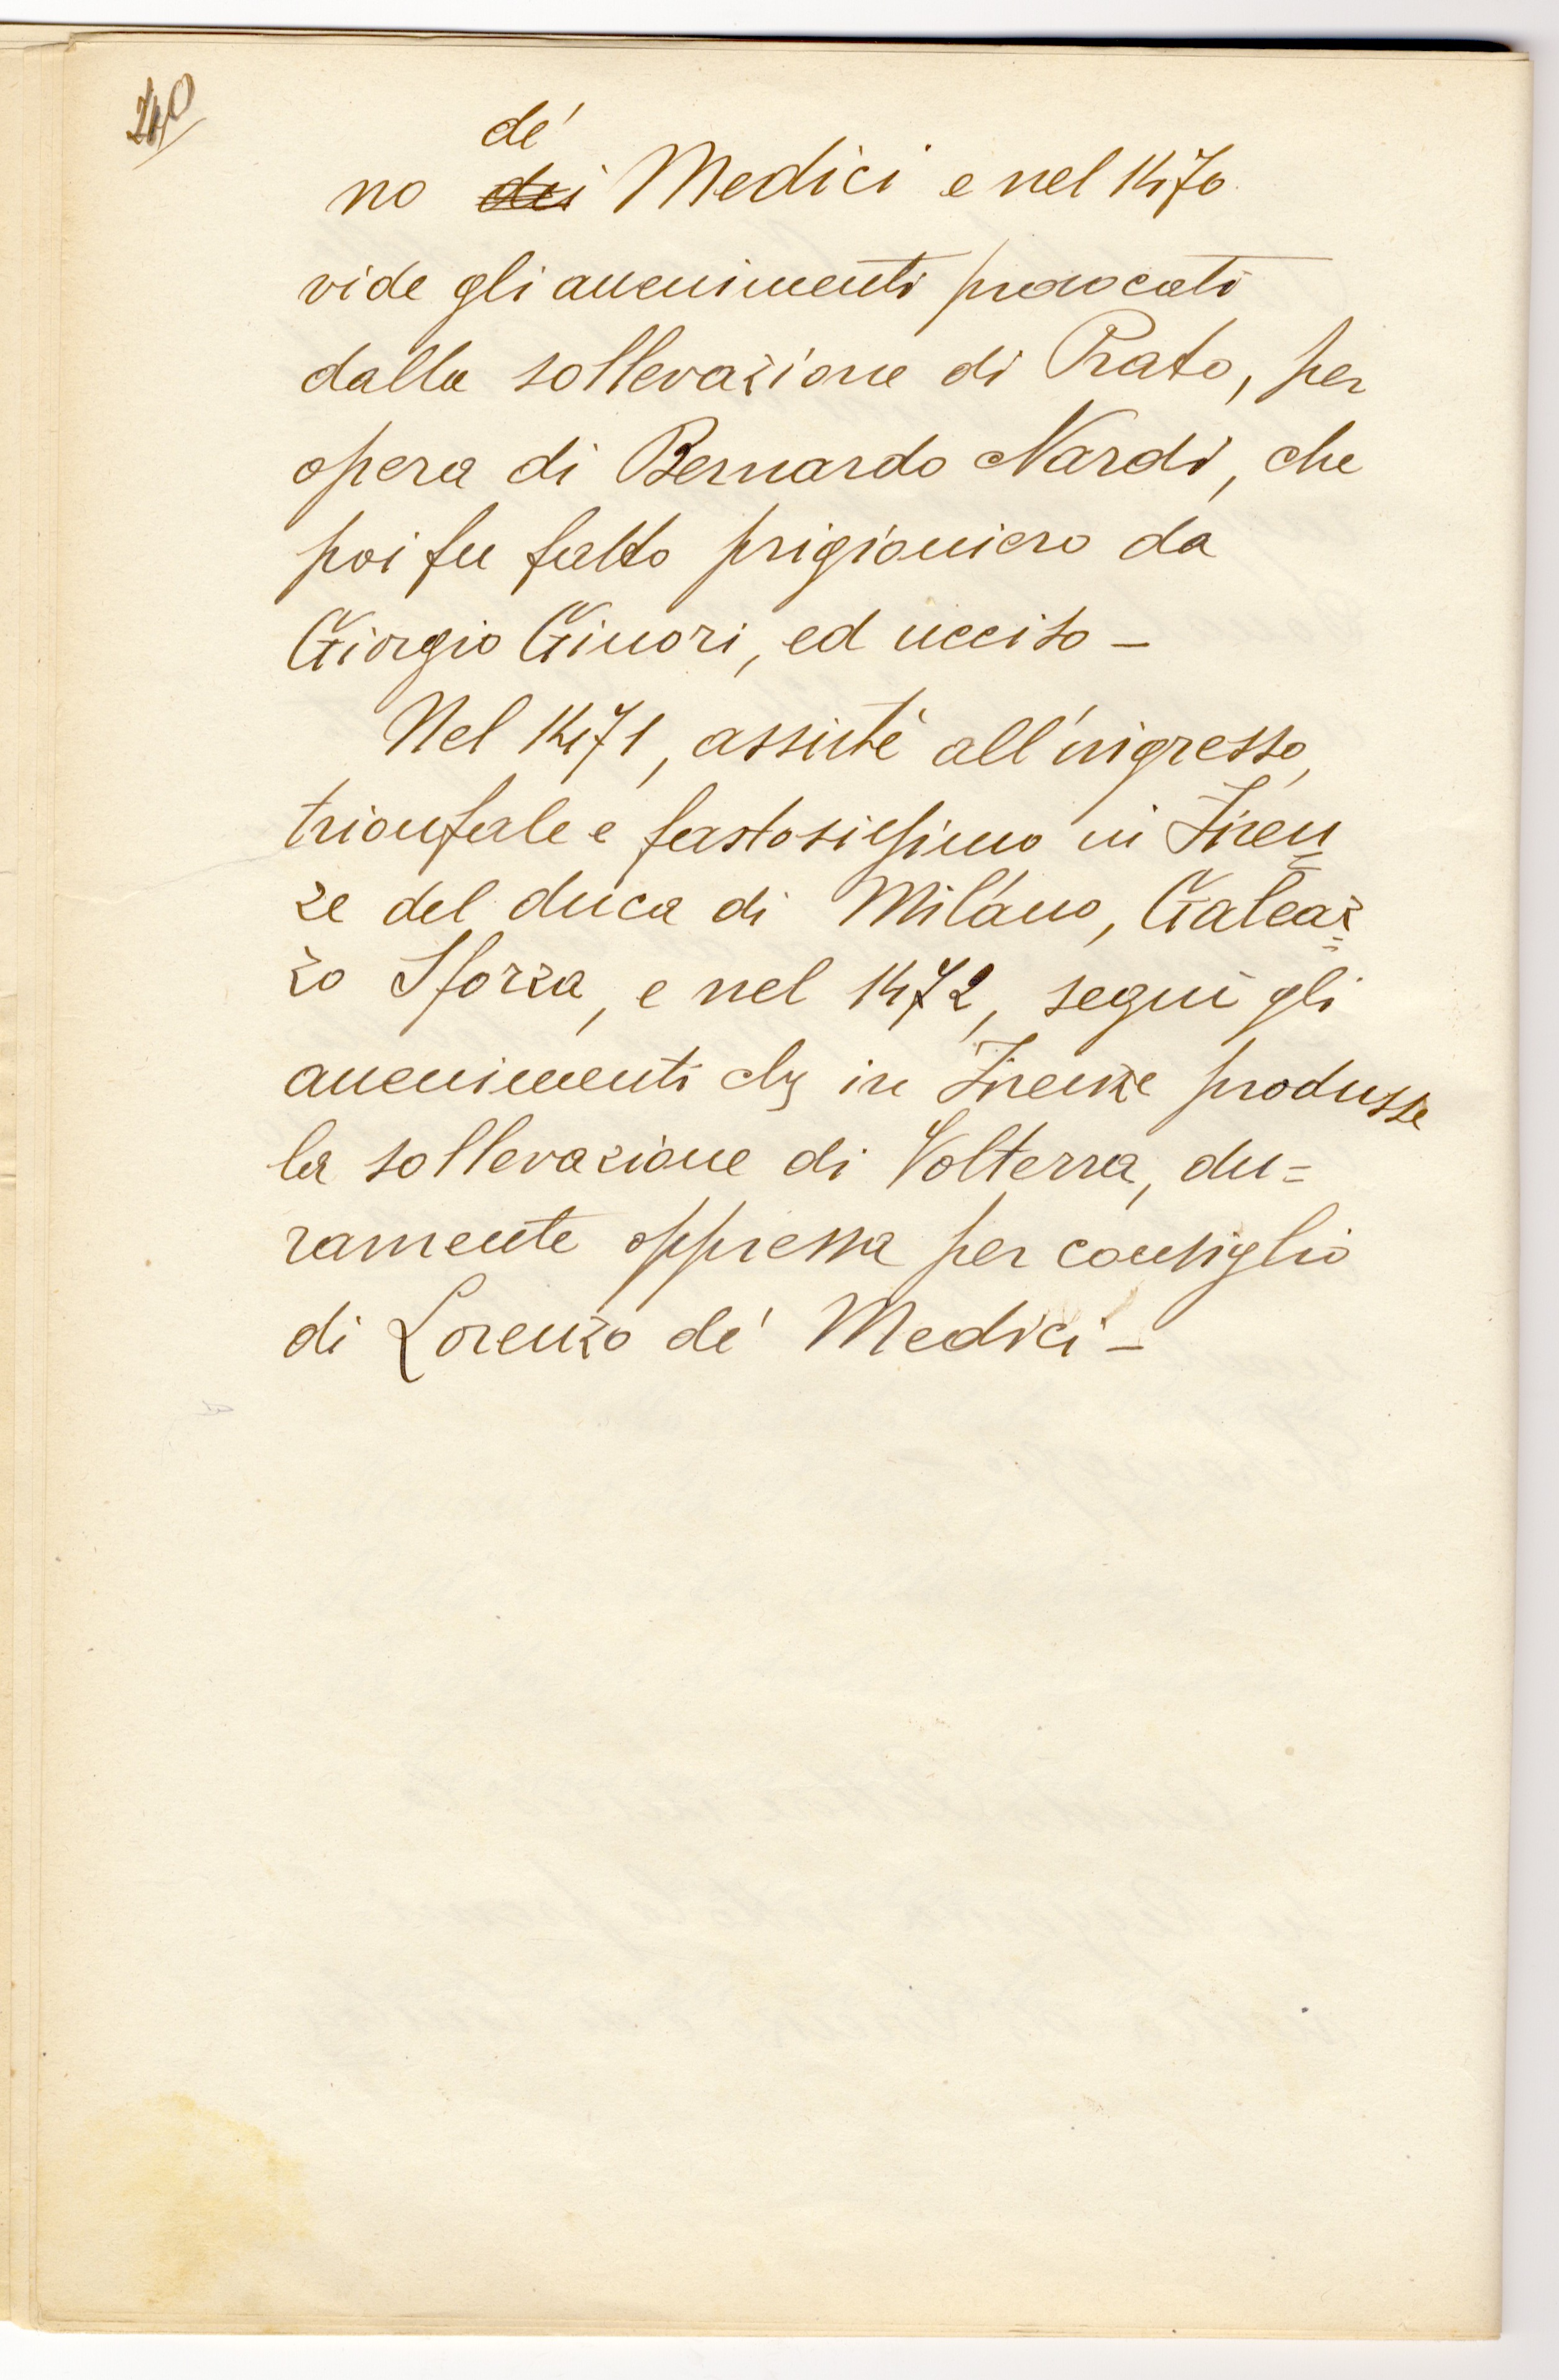 240
de'
no dei Medici e nel 1470
vide gli avvenimenti provocati
dalla sollevazione di Prato, per
opera di Bernardo Nardi, che
poi fu fatto prigioniero da
Giorgio Ginori, ed ucciso –
Nel 1471, assisté all'ingresso,
trionfale e fastosissimo in Firen=
ze del duca di Milano, Galeaz=
zo Sforza, e nel 1472, seguì gli
avvenimenti che in Firenze produsse
la sollevazione di Volterra, du=
ramente oppressa per consiglio
di Lorenzo de' Medici –